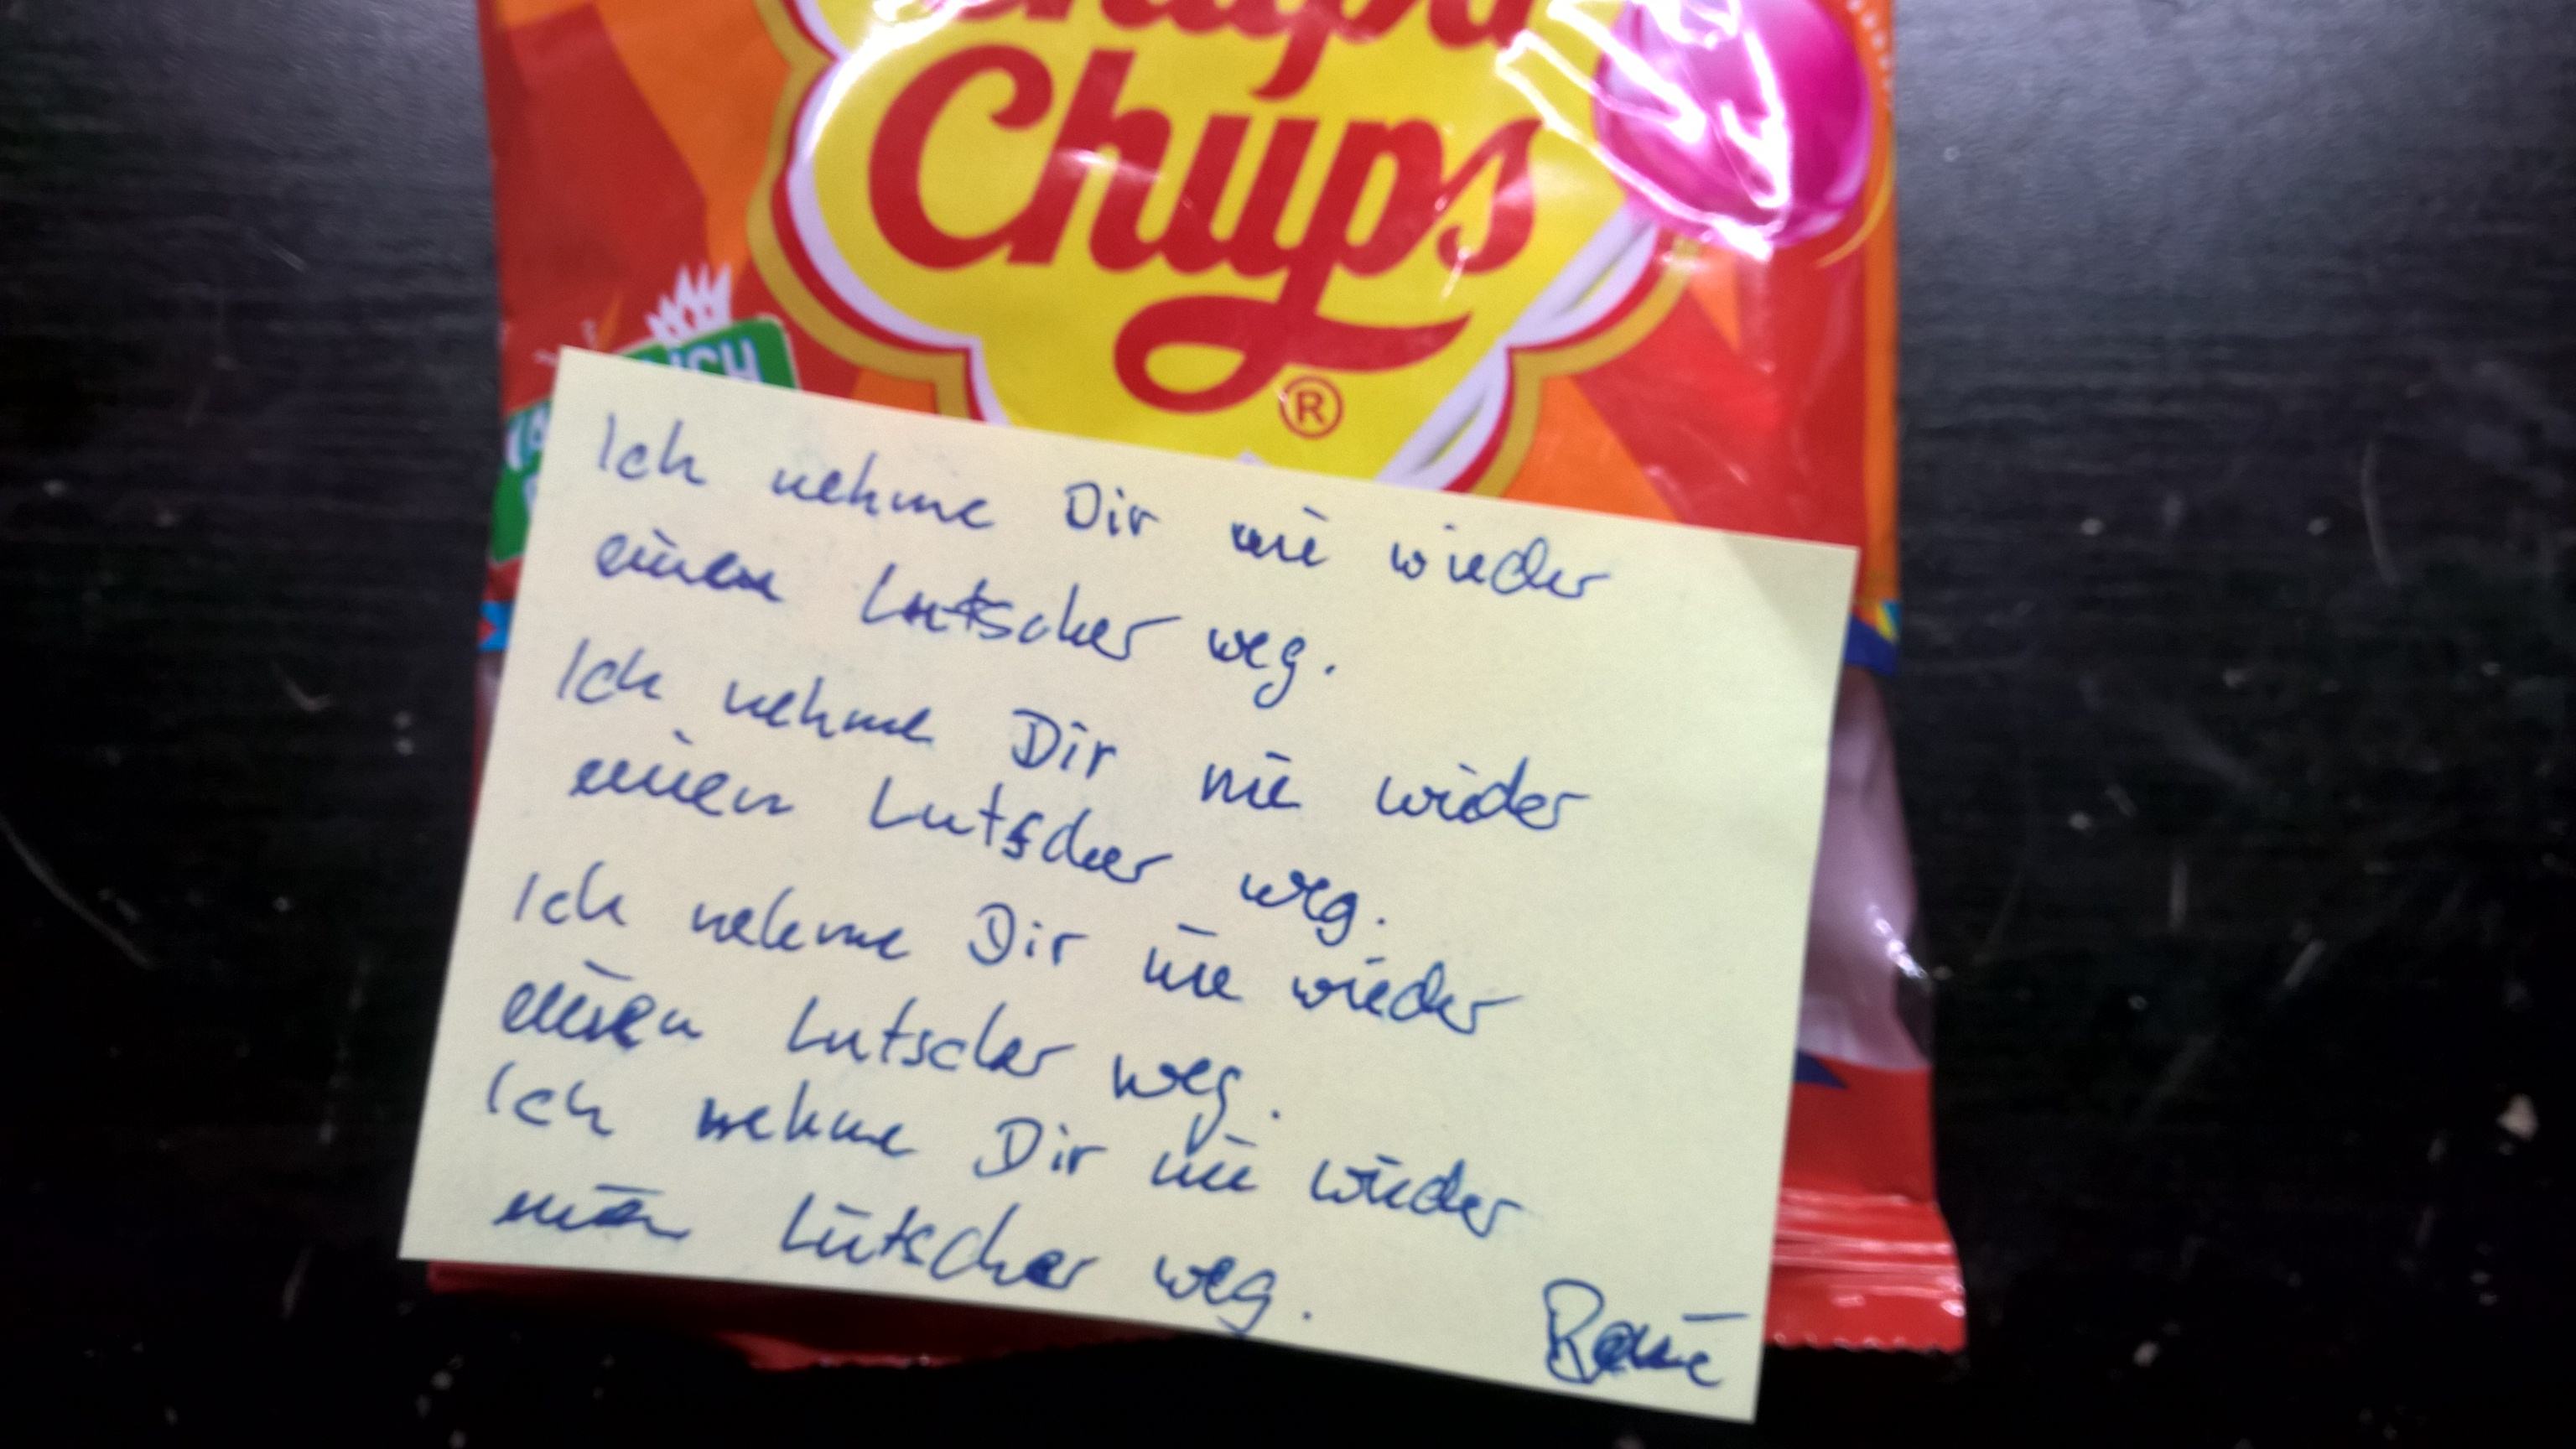 Chupa
Chups
®
Ich nehme Dir nie wieder
einen Lutscher weg.
Ich nehme Dir nie wieder
einen Lutscher weg.
Ich nehme Dir nie wieder
einen Lutscher weg.
Ich nehme Dir nie wieder
einen Lutscher weg.